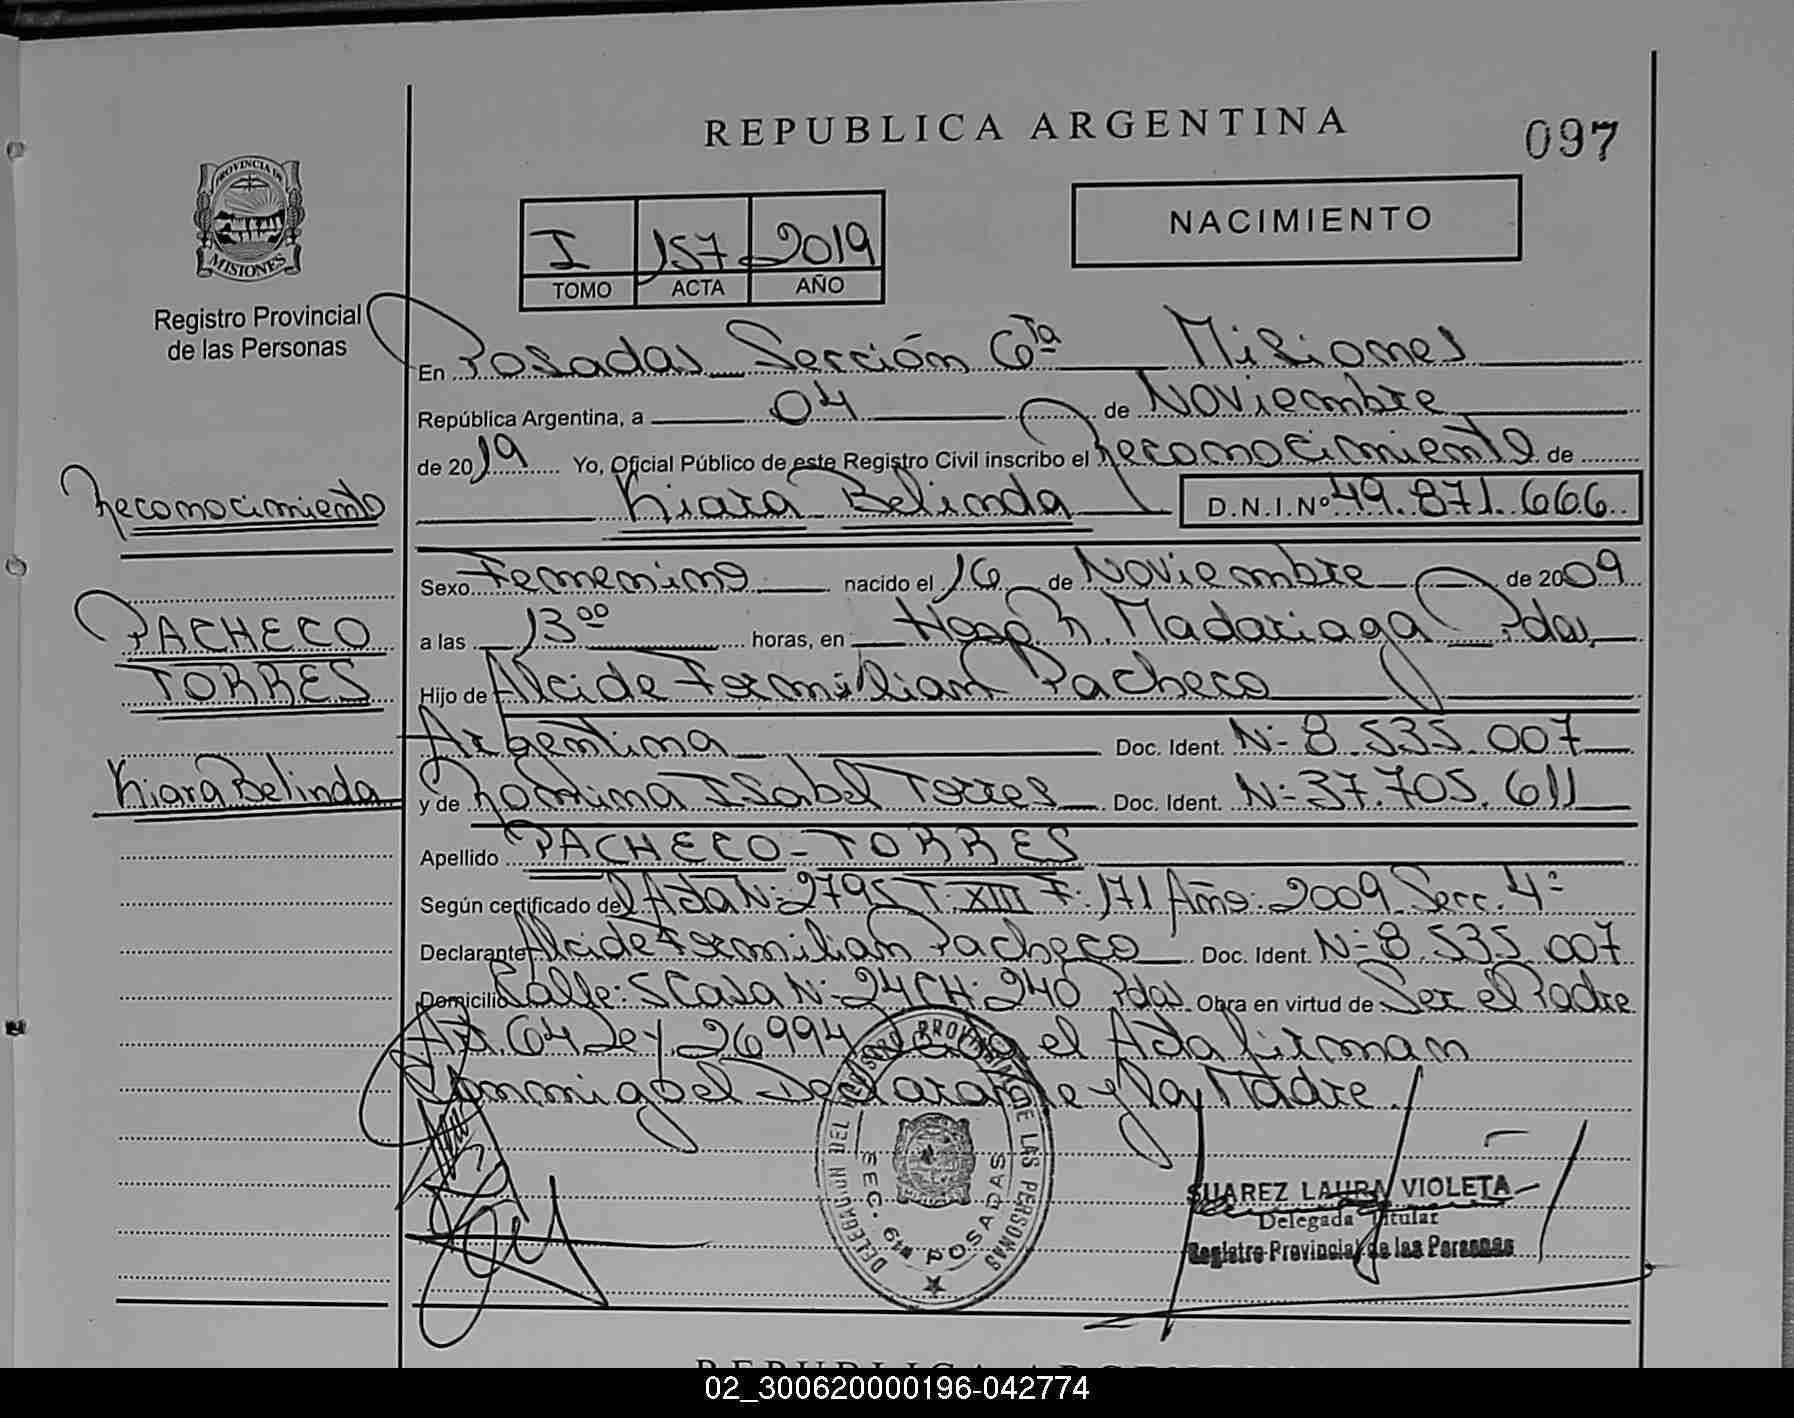 REPUBLICA ARGENTINA
097
PROVINCIA DE
MISIONES
Registro Provincial
de las Personas
I 157 2019
TOMO ACTA AÑO
NACIMIENTO
En Posadas Sección 6ta Misiones
República Argentina, a 04 de Noviembre
de 2019 Yo, Oficial Público de este Registro Civil inscribo el Reconocimiento de
Kiara Belinda D.N.I. Nº 49.871.666
Reconocimiento
PACHECO
TORRES
Kiara Belinda
Sexo Femenino nacido el 16 de Noviembre de 2009
a las 13.00 horas, en Hosp. R. Madariaga Pdas
Hijo de Alcide Fermilian Pacheco
Argentina Doc. Ident. Nº 8.535.007
y de Romina Isabel Torres Doc. Ident. Nº 37.705.611
Apellido PACHECO - TORRES
Según certificado del Acta Nº 2795 T: XIII F: 171 Año: 2009 Secc. 4º
Declarante Alcide Fermilian Pacheco Doc. Ident. Nº 8.535.007
Domicilio Calle: S Casa Nº 24 CH: 240 Pdas Obra en virtud de Ser el Padre
Art. 64 Ley 26994 el Acta firman
Conmigo el Declarante y la Madre.
DELEGACION DEL REGISTRO PROVINCIAL DE LAS PERSONAS
SEC. 6ta POSADAS
SUAREZ LAURA VIOLETA
Delegada Titular
Registro Provincial de las Personas
REPUBLICA ARGENTINA
02_300620000196-042774